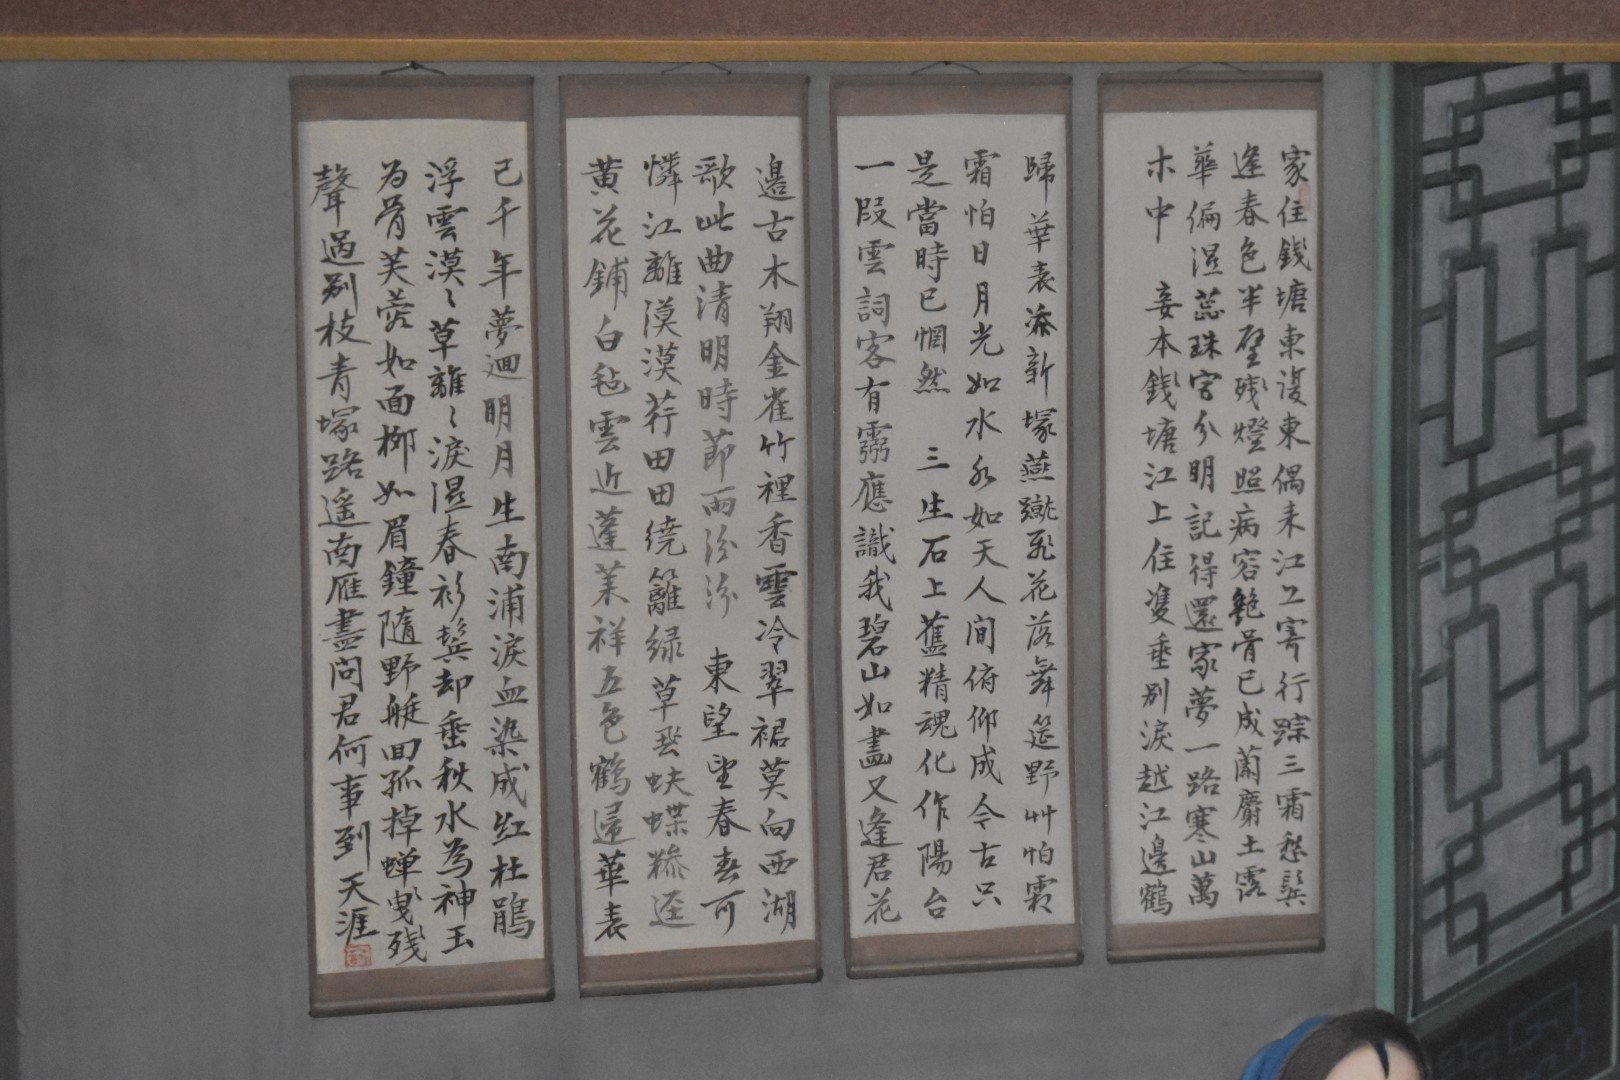 家住錢塘東復東偶来江上寄行踪三霜愁鬂
逢春色半壁残燈照病容艶骨已成蘭麝土露
華偏湿蕊珠宮分明記得還家夢一路寒山萬
木中 妾本錢塘江上住雙垂別淚越江邊鶴
歸華表添新塚燕蹴飛花落舞筵野艸怕霜
霜怕日月光如水水如天人间俯仰成今古只
是當時已惘然 三生石上舊精魂化作陽台
一段雲詞客有靈應識我碧山如畫又逢君花
邉古木翔金雀竹裡香雲冷翠裙莫向西湖
歌此曲清明時節雨汾汾 東望望春春可
憐江離漠漠荇田田绕籬緑草飛蛱蝶糝逕
黄花鋪白毡雲近蓬莱祥五色鶴還華表
已千年夢迴明月生南浦淚血染成红杜鵑
浮雲漠〻草離〻淚濕春衫鬂却垂秋水為神玉
为骨芙蓉如面柳如眉鐘隨野艇回孤掉蝉曳残
聲過别枝青塚路遥南雁盡问君何事到天涯